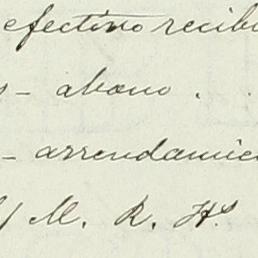 efectivo recibi
s - abono .
- arrendamie
/ M. R. Hs.